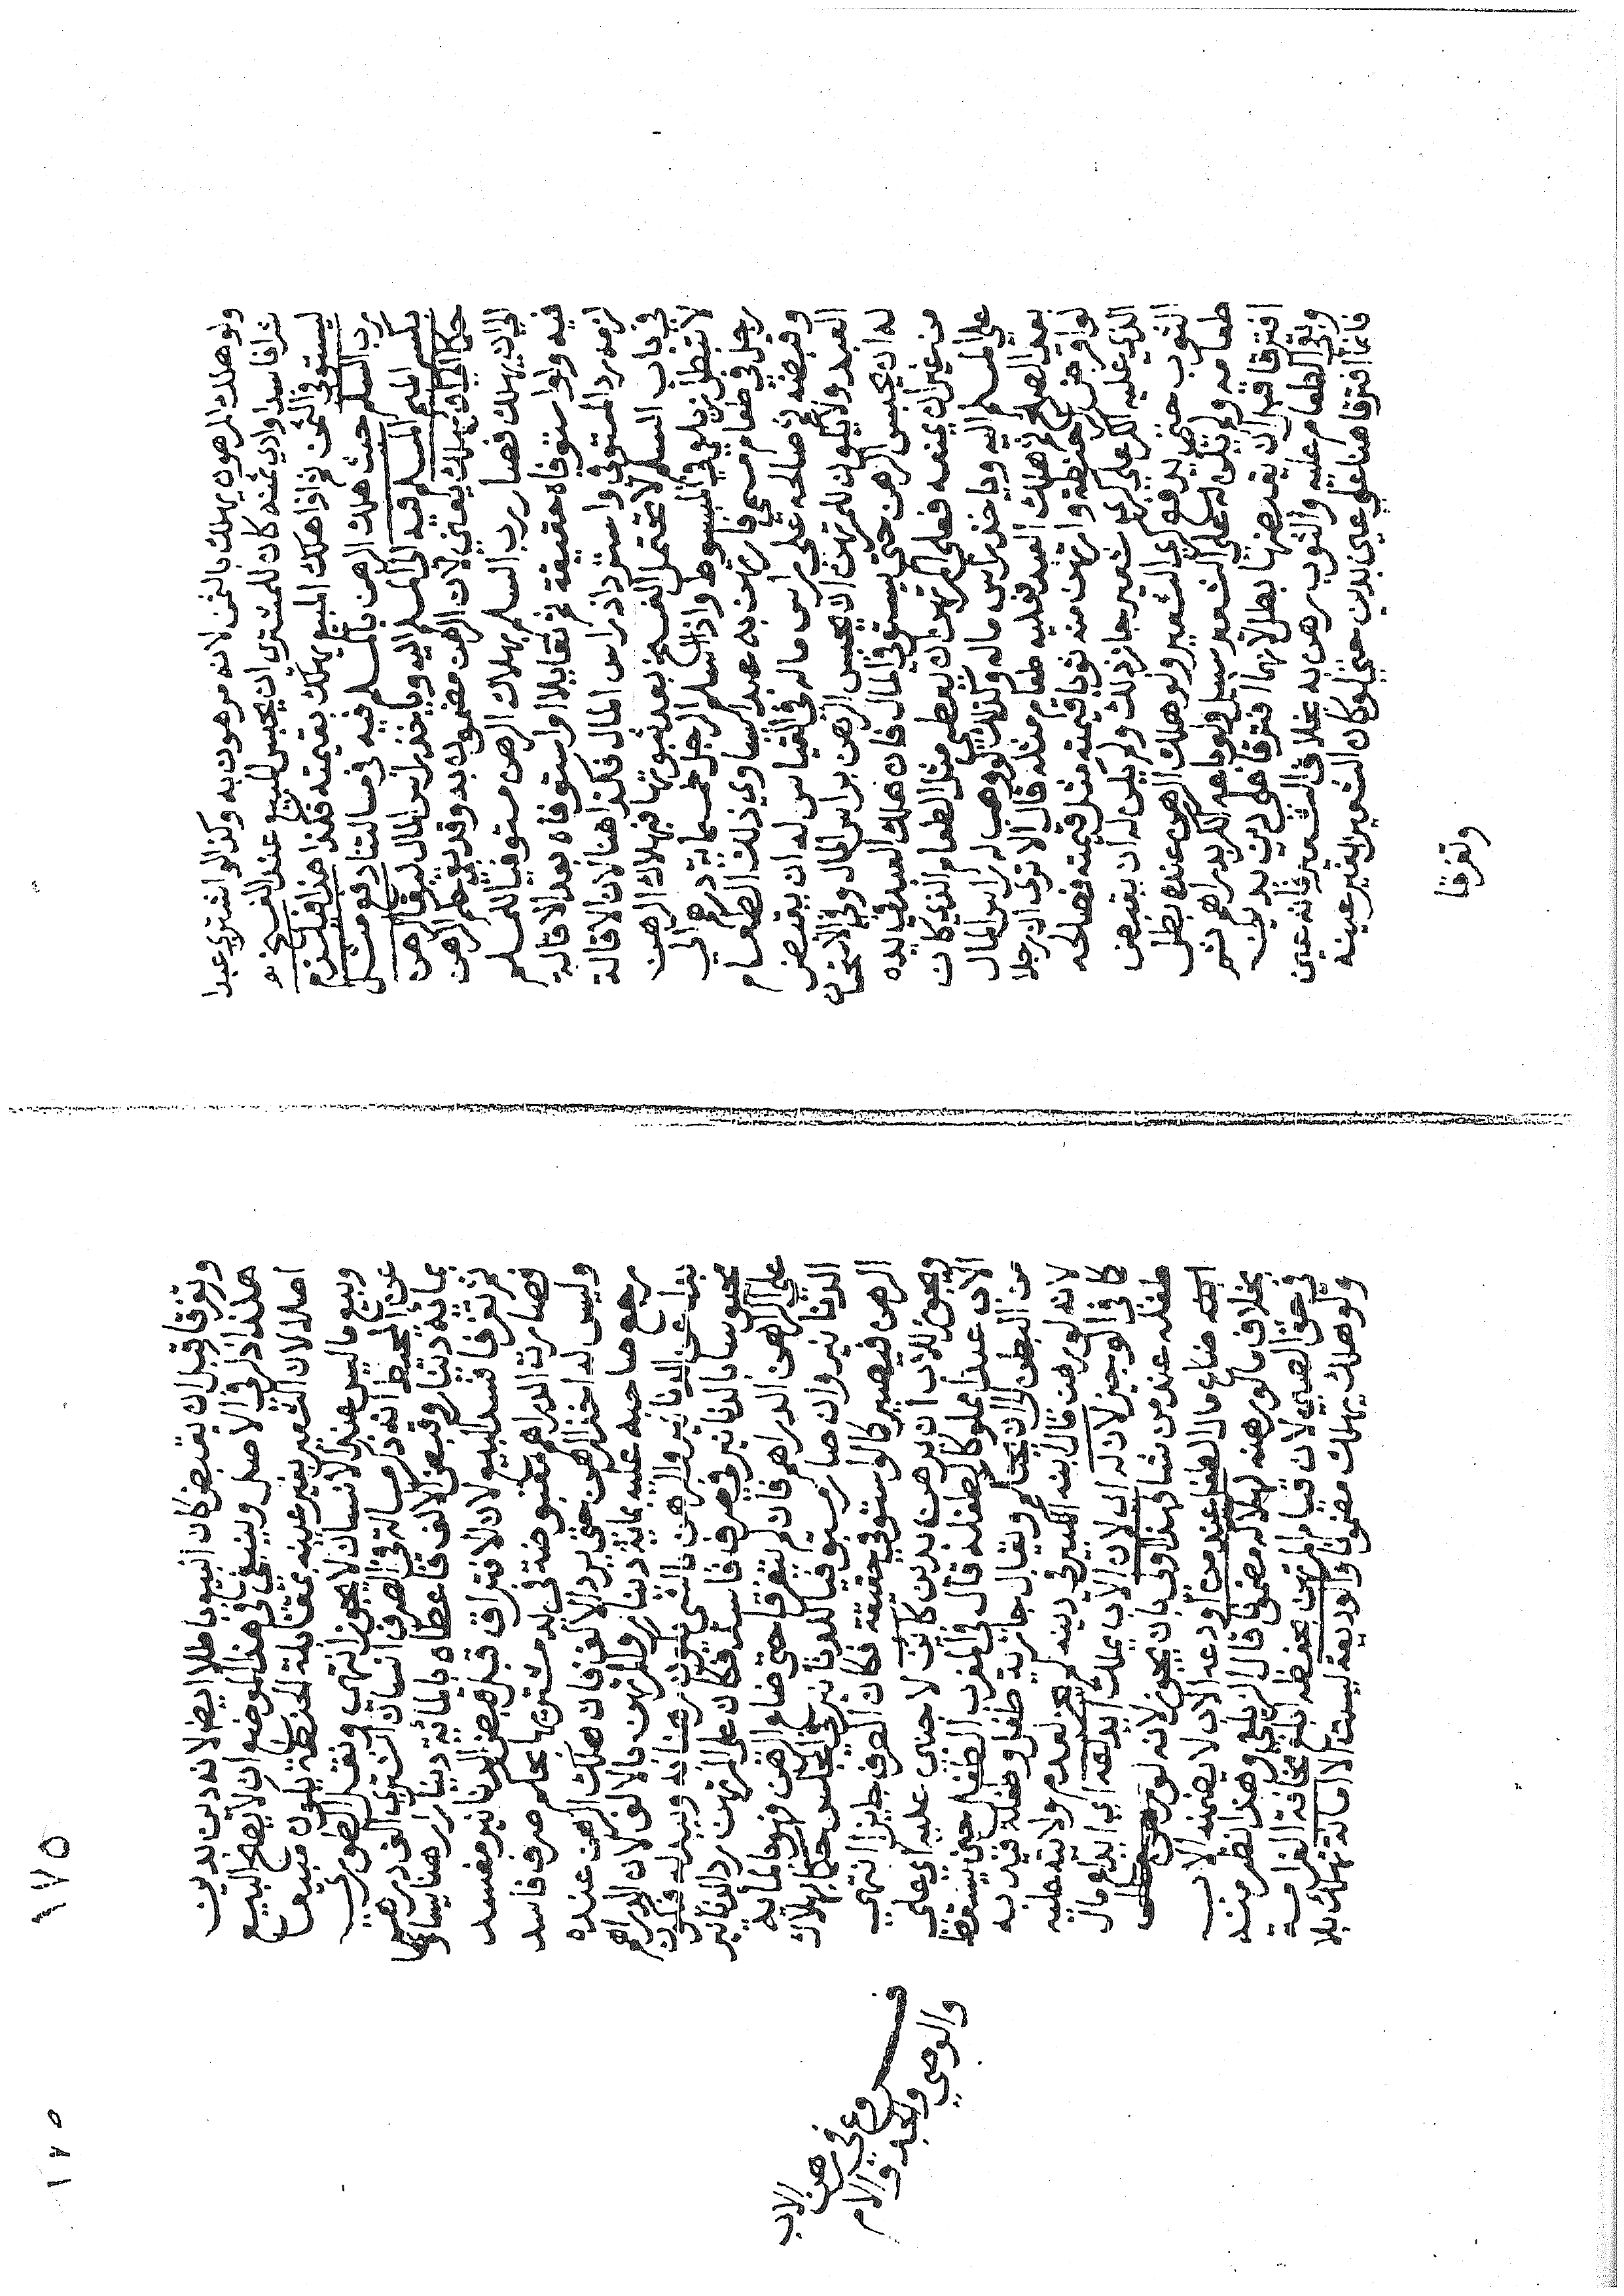 ولو هلك المرهون يهلك بالثمن لانه مرهون به وكذا لو اشتري عبدا
شرا فاسدا وادي ثمنه كان للمشتري ان يحبس المبيع عند الفسخ
ليستوفي الثمن ثم اذا هلك المبيع يهلك بقيمته فكذا هذا فيلزم
رب السلم حيث هلك الرهن بالمسلم فيه في مسالتنا دفع مثل
المسلم فيه الى المسلم اليه وياخذ راس المال لبقاء الرهن
حكما الى ان يهلك يعني لان الرهن مضمون به وقد بقي حكم الرهن
الى ان يهلك فصار رب السلم بهلاك الرهن مستوفيا للمسلم
فيه ولو استوفاه حقيقة ثم تقايلا او استوفاه بعد الاقالة
لزمه رد المستوفي واسترداد راس المال فكذا هنا لان الاقالة
في باب السلم لا تحتمل الفسخ بعد ثبوتها فبهلاك الرهن
لا تبطل زيلعي وفي المبسوط واذا اسلم الرجل خمسماية درهم الى
رجل في طعام مسمي فارتهن به عبدا يساوي ذلك الطعام
وقبضه ثم صالحه على راس ماله ففي القياس له ان يقبض
العبد ولا يكون للمرتهن ان يحبس الرهن براس المال وفي الاستحسان
له ان يحبس الرهن حتى يستوفي المال فان هلك العبد في يده
من غير ان يمنعه فعلى المرتهن ان يعطي مثل الطعام الذي كان
على المسلم اليه وياخذ راس ماله وكذلك لو وهب له راس المال
بعد الصلح ثم هلك العبد فعليه طعام مثله قال الا ترى ان رجلا
لو اقرض كر حنطة وارتهن منه ثوبا قيمته مثل قيمته فصالحه
الذي عليه الكر على كر شعير جاز ذلك ولم يكن له ان يقبض
الثوب حتى يدفع اليه الشعير ولو هلك الرهن عنده بطل
طعامه ولم يكن له على الشعير سبيل ولو باعه الكر بدراهم ثم
افترقا قبل ان يقبضها بطل لانهما افترقا عن دين بدين
وبقي الطعام عليه والثوب رهن به بخلاف الشعير فانه عين
فانما افترقا هنا على عين بدين حتى لو كان الشعير بغير عينه
وتفرقا
وتفرقا قبل ان يقبض كان البيع باطلا ايضا لانه دين بدين
هكذا ذكر في الاصل وينبغي في هذا الموضع ان لا يصح البيع
اصلا لان الشعير بغير عينه بمقابلة الحنطة يكون مبيعا
وبيع ما ليس عند الانسان لا يجوز انتهى ونقل الطوري
عن المحيط انه ذكر مسالة في الصرف انسان اشترى الف درهم
بماية دينار وقبض الالف فاعطاه بالماية دينار رهنا يساويها
ثم تفرقا فسد البيع لان الافتراق قبل قبض الدنانير مفسد
فصارت الدراهم مقبوضة في يد مشتريها بحكم صرف فاسد
وليس له اخذ الرهن حتى يرد الالف فان هلك الرهن عنده
رجع صاحبه عليه بماية دينار والمرتهن بالالف لان الدراهم
محبوسا بالدنانير في صرف فاسد فكان على المرتهن رد الدنانير
على الراهن الدراهم فان لم يتفرقا حتى ضاع الرهن فهو بالماية
الدنانير وان صار مستوفيا للدنانير في المجلس حكما بهلاك
الرهن فيصير كما لو استوفي حقيقة فكان الصرف جايزا انتهى
ويجوز للاب ان يرهن بدين كاين لاجنبي عليه اي على
الاب عبدا مملوكا لطفله قال في المغرب الطفل حين يسقط
من البطن الى ان يحتلم ويقال جارية طفل وطفلة قيد به
لانه لو رهن مال ابنه الكبير في دينه لم يجز لعدم ولايته عليه
كما في الوجيز لان له اي لان الاب يملك ايداعه اي ايداع مال
طفله عند من شاء فهذا اولى بان يجوز لانه لو
ضاع مال الطفل عند من اودعه الاب لا يضمنه الاب
بخلاف ما لو رهنه لهلاكه مضمونا قال الزيلعي وهذا انظر منه
في حق الصبي لان قيام المرتهن بحفظه ابلغ مخافة الغرامة
ولو هلك يهلك مضمونا والوديعة ليست الا امانة تهلك بلا
فروع في رهن الاب
والوصي والجد والام
١٧٥
١٧٥